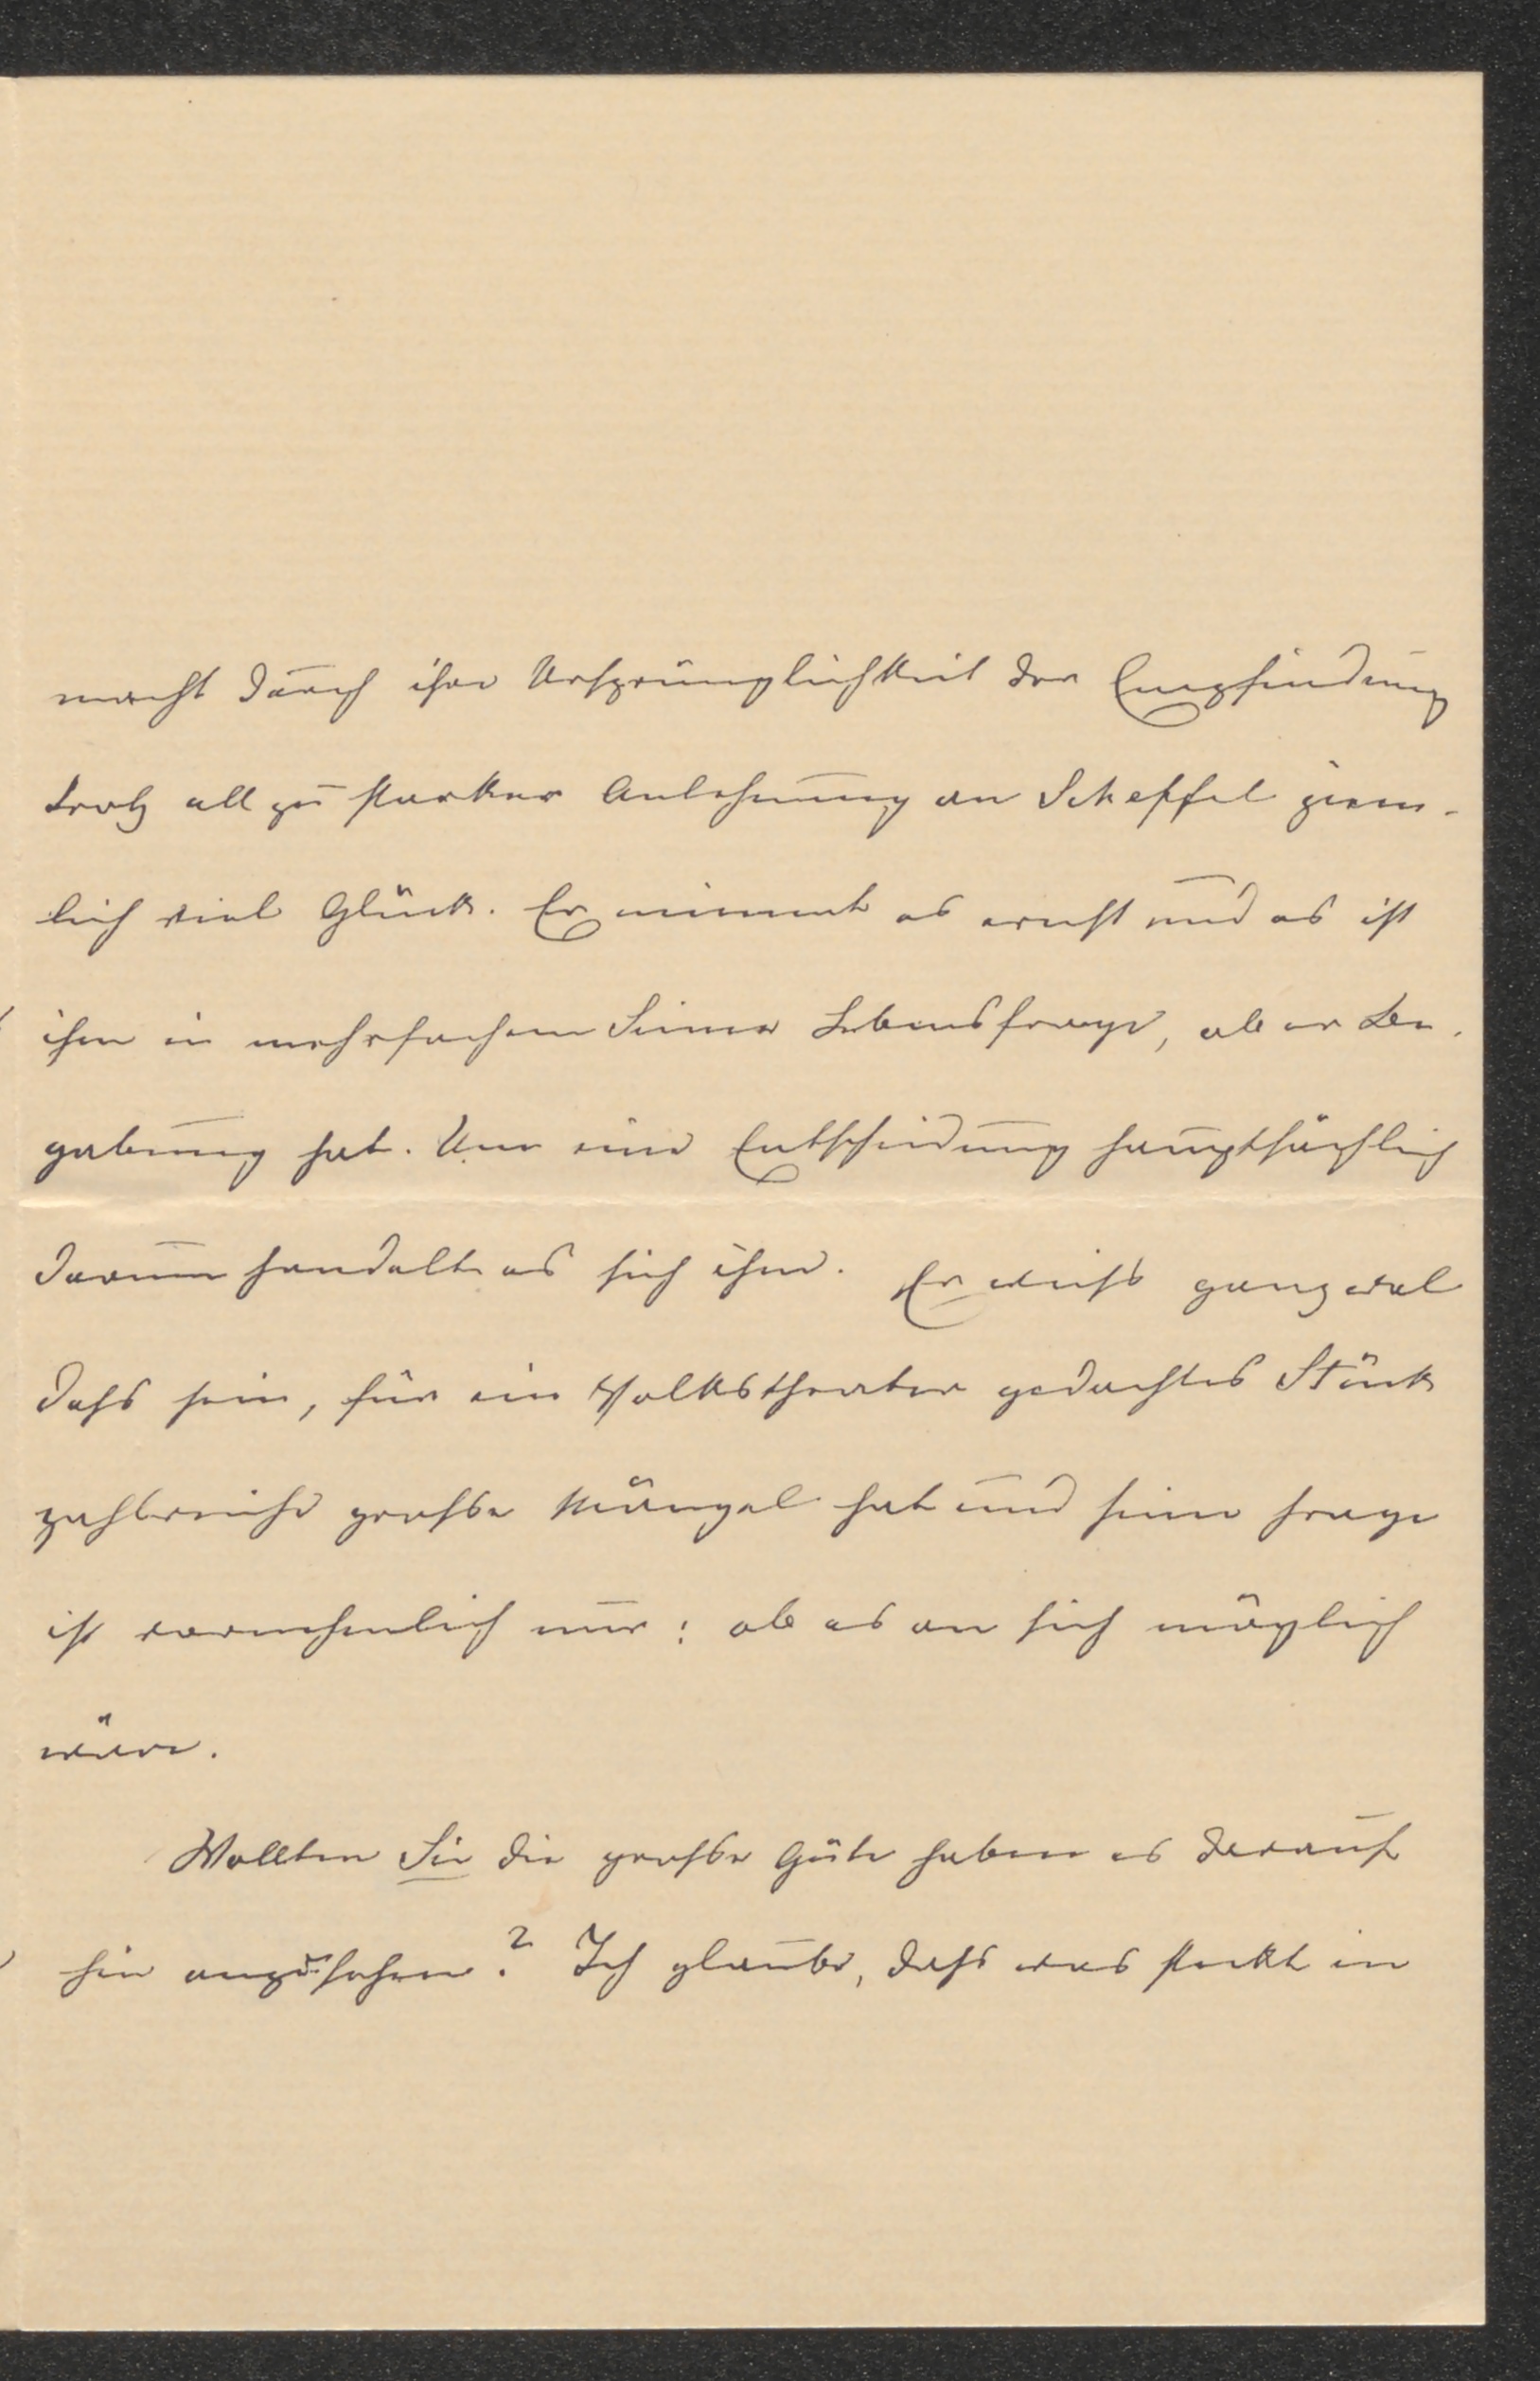 macht durch ihre Ursprünglichkeit der Empfindung
trotz all zu starker Anlehnung an Scheffel ziem-
lich viel Glück. Er nimmt es ernst und es ist
ihm in mehrfachem Sinne Lebensfrage, ob er Be-
gabung hat. Um eine Entscheidung hauptsächlich
darum handelt es sich ihm. Er weiß ganz wol
daß sein, für ein Volkstheater gedachtes Stück
zahlreiche große Mängel hat und seine Frage
ist vornehmlich nur: ob es an sich möglich
wäre.
Wollten Sie die große Güte haben es darauf
hin anzusehen? Ich glaube, daß was steckt in